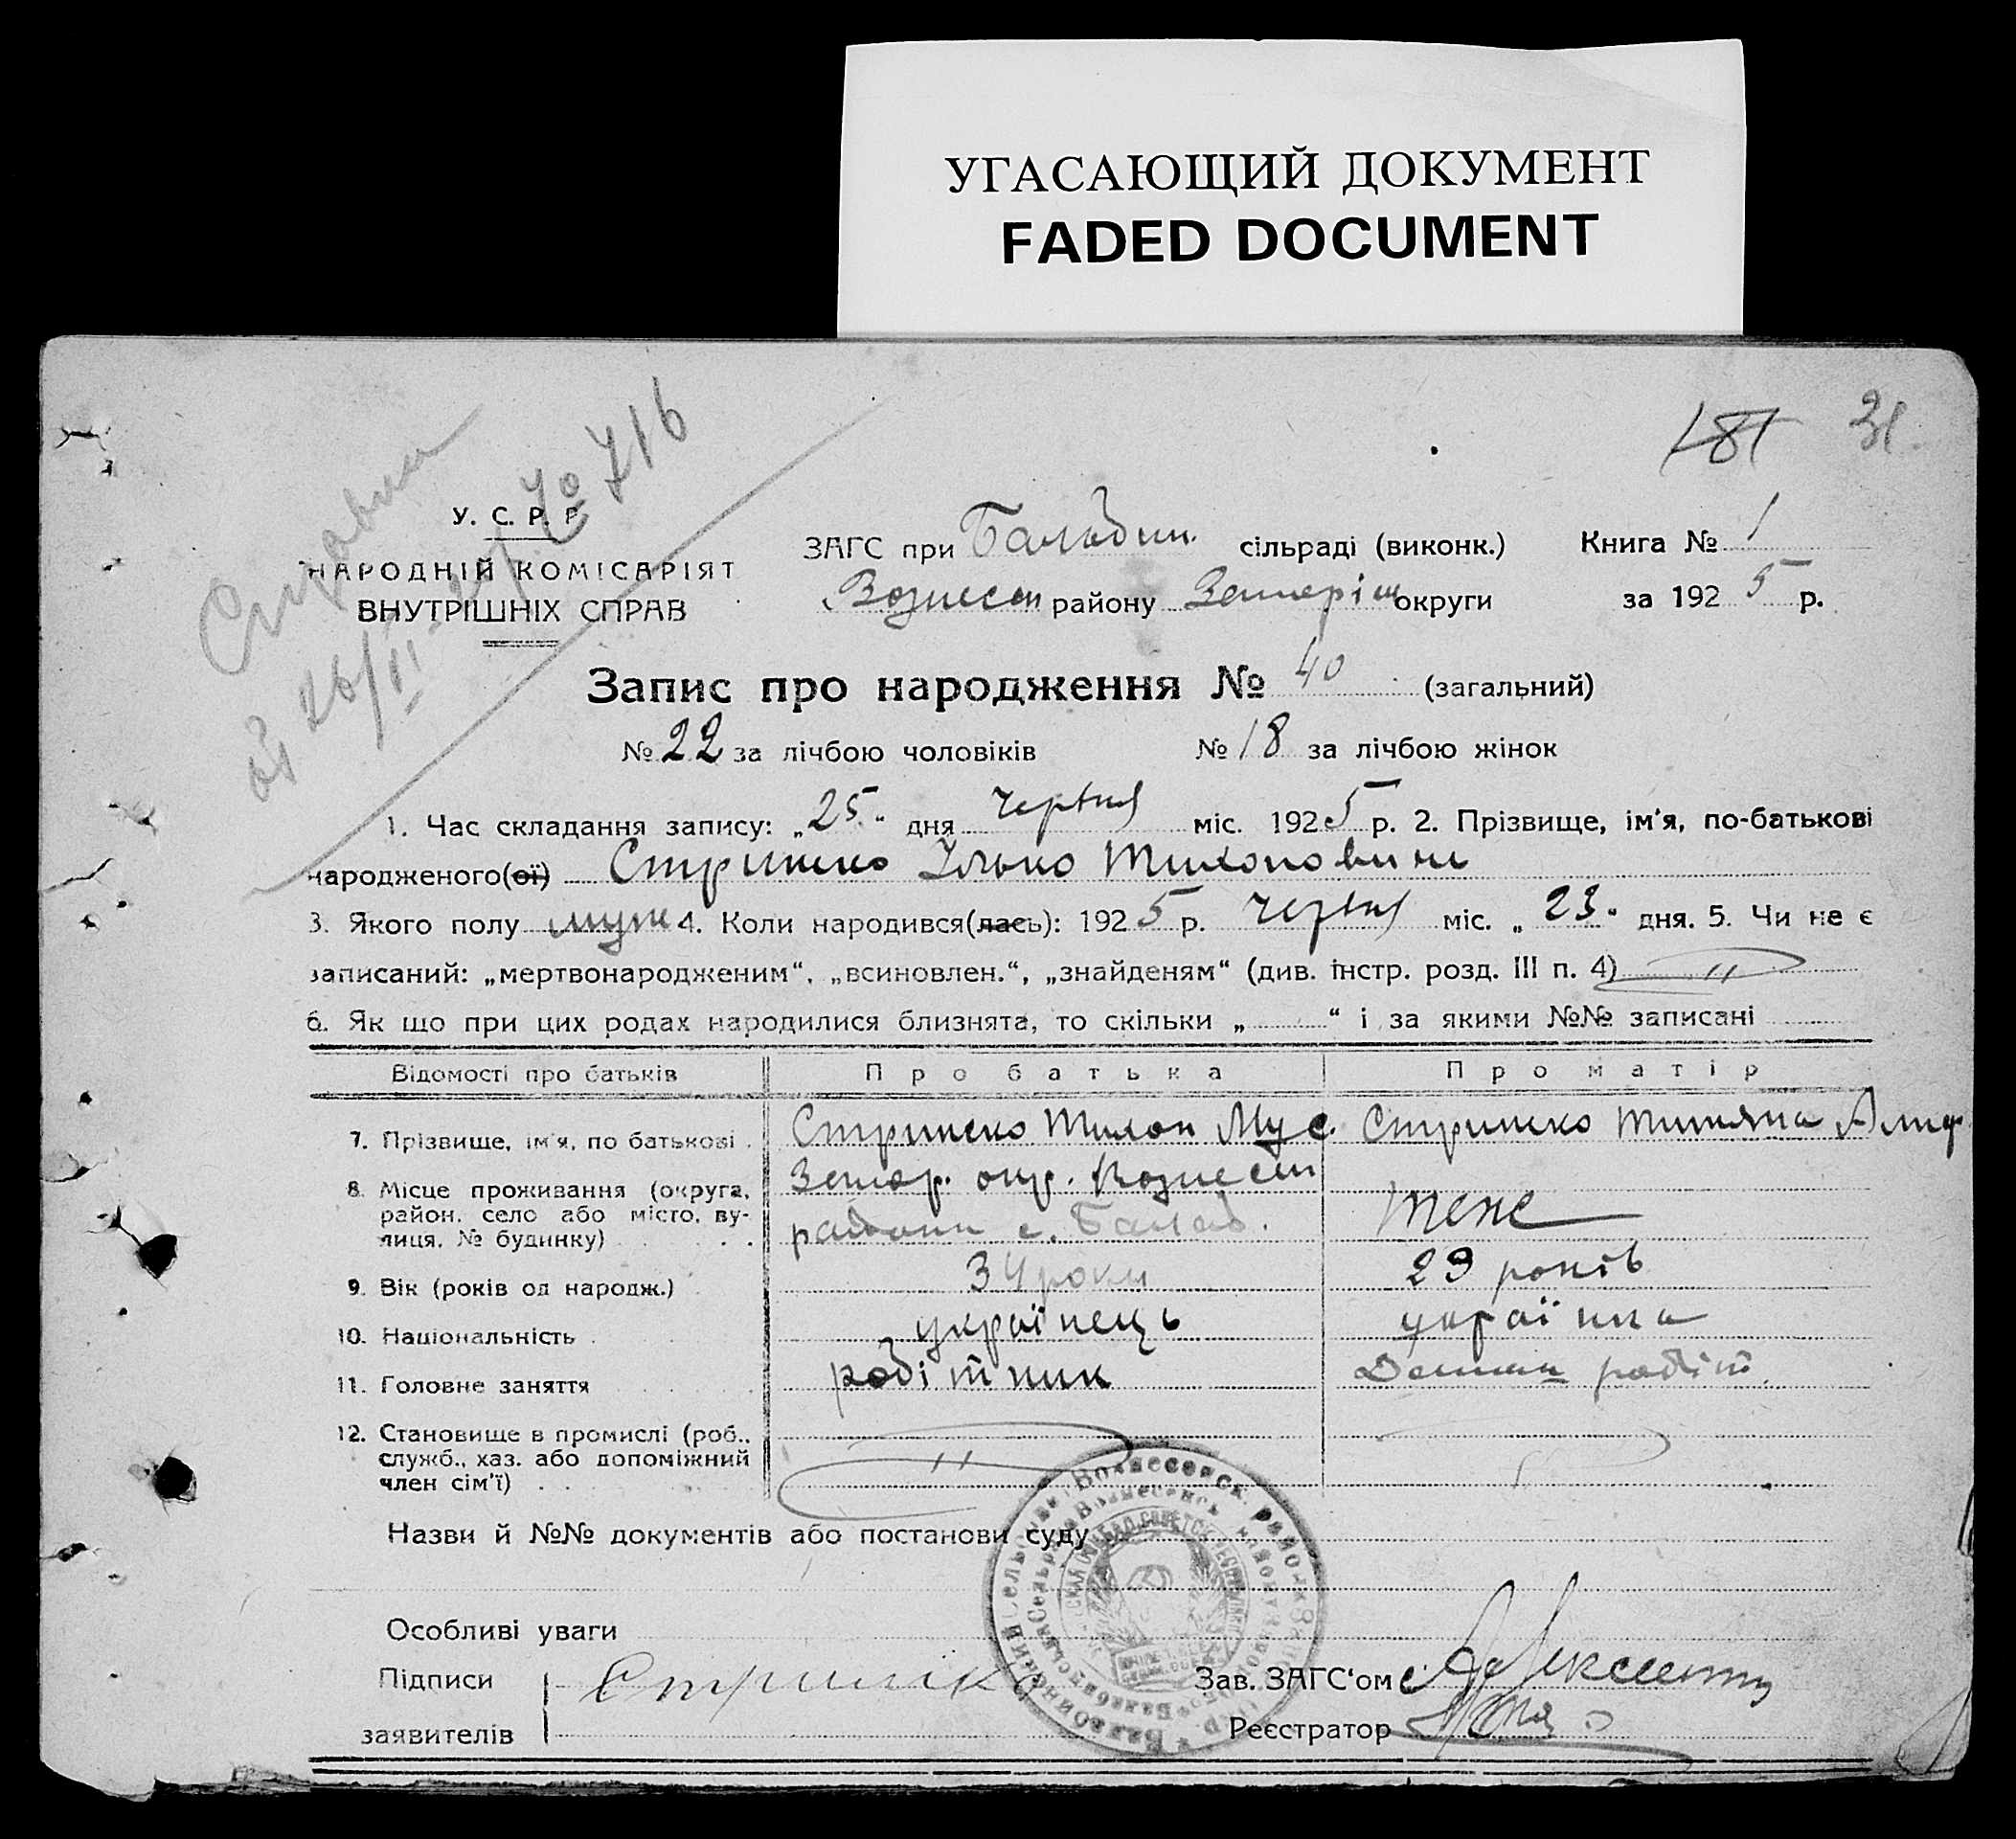 УГАСАЮЩИЙ ДОКУМЕНТ
FADED DOCUMENT
181 31
Справка
от 26/II № 716
У. С. Р. Р.
НАРОДНІЙ КОМІСАРІЯТ
ВНУТРІШНІХ СПРАВ
ЗАГС при сільраді (виконк.) Книга № 1
Вознесен району Запоріш округи за 1925 р.
Запис про народження № 40 (загальний)
№ 22 за лічбою чоловіків № 18 за лічбою жінок
1. Час складання запису: „25“ дня червня міс. 1925 р. 2. Прізвище, ім'я, по-батькові
народженого(ої) Стришко Ілько Тихонович
3. Якого полу муж 4. Коли народився(лась): 1925 р. червня міс. „23“ дня. 5. Чи не є
записаний: „мертвонародженим“, „всиновлен.“, „знайденям“ (див. інстр. розд. III п. 4) „
6. Як що при цих родах народилися близнята, то скільки „ “ і за якими №№ записані
Відомості про батьків Про батька Про матір
7. Прізвище, ім'я, по батькові Стришко Тихон Мус. Стришко Титяна
8. Місце проживання (округа, район, село або місто, вулиця, № будинку) Запор. окр. Вознесен
району с. Балаб. Теж
9. Вік (років од народж.) 34 роки 29 років
10. Національність українець українка
11. Головне заняття робітник Домаш робіт.
12. Становище в промислі (роб., служб., хаз. або допоміжний член сім'ї) „
Назви й №№ документів або постанови суду
Особливі уваги
Підписи заявителів Стришко
Зав. ЗАГС'ом
Реєстратор